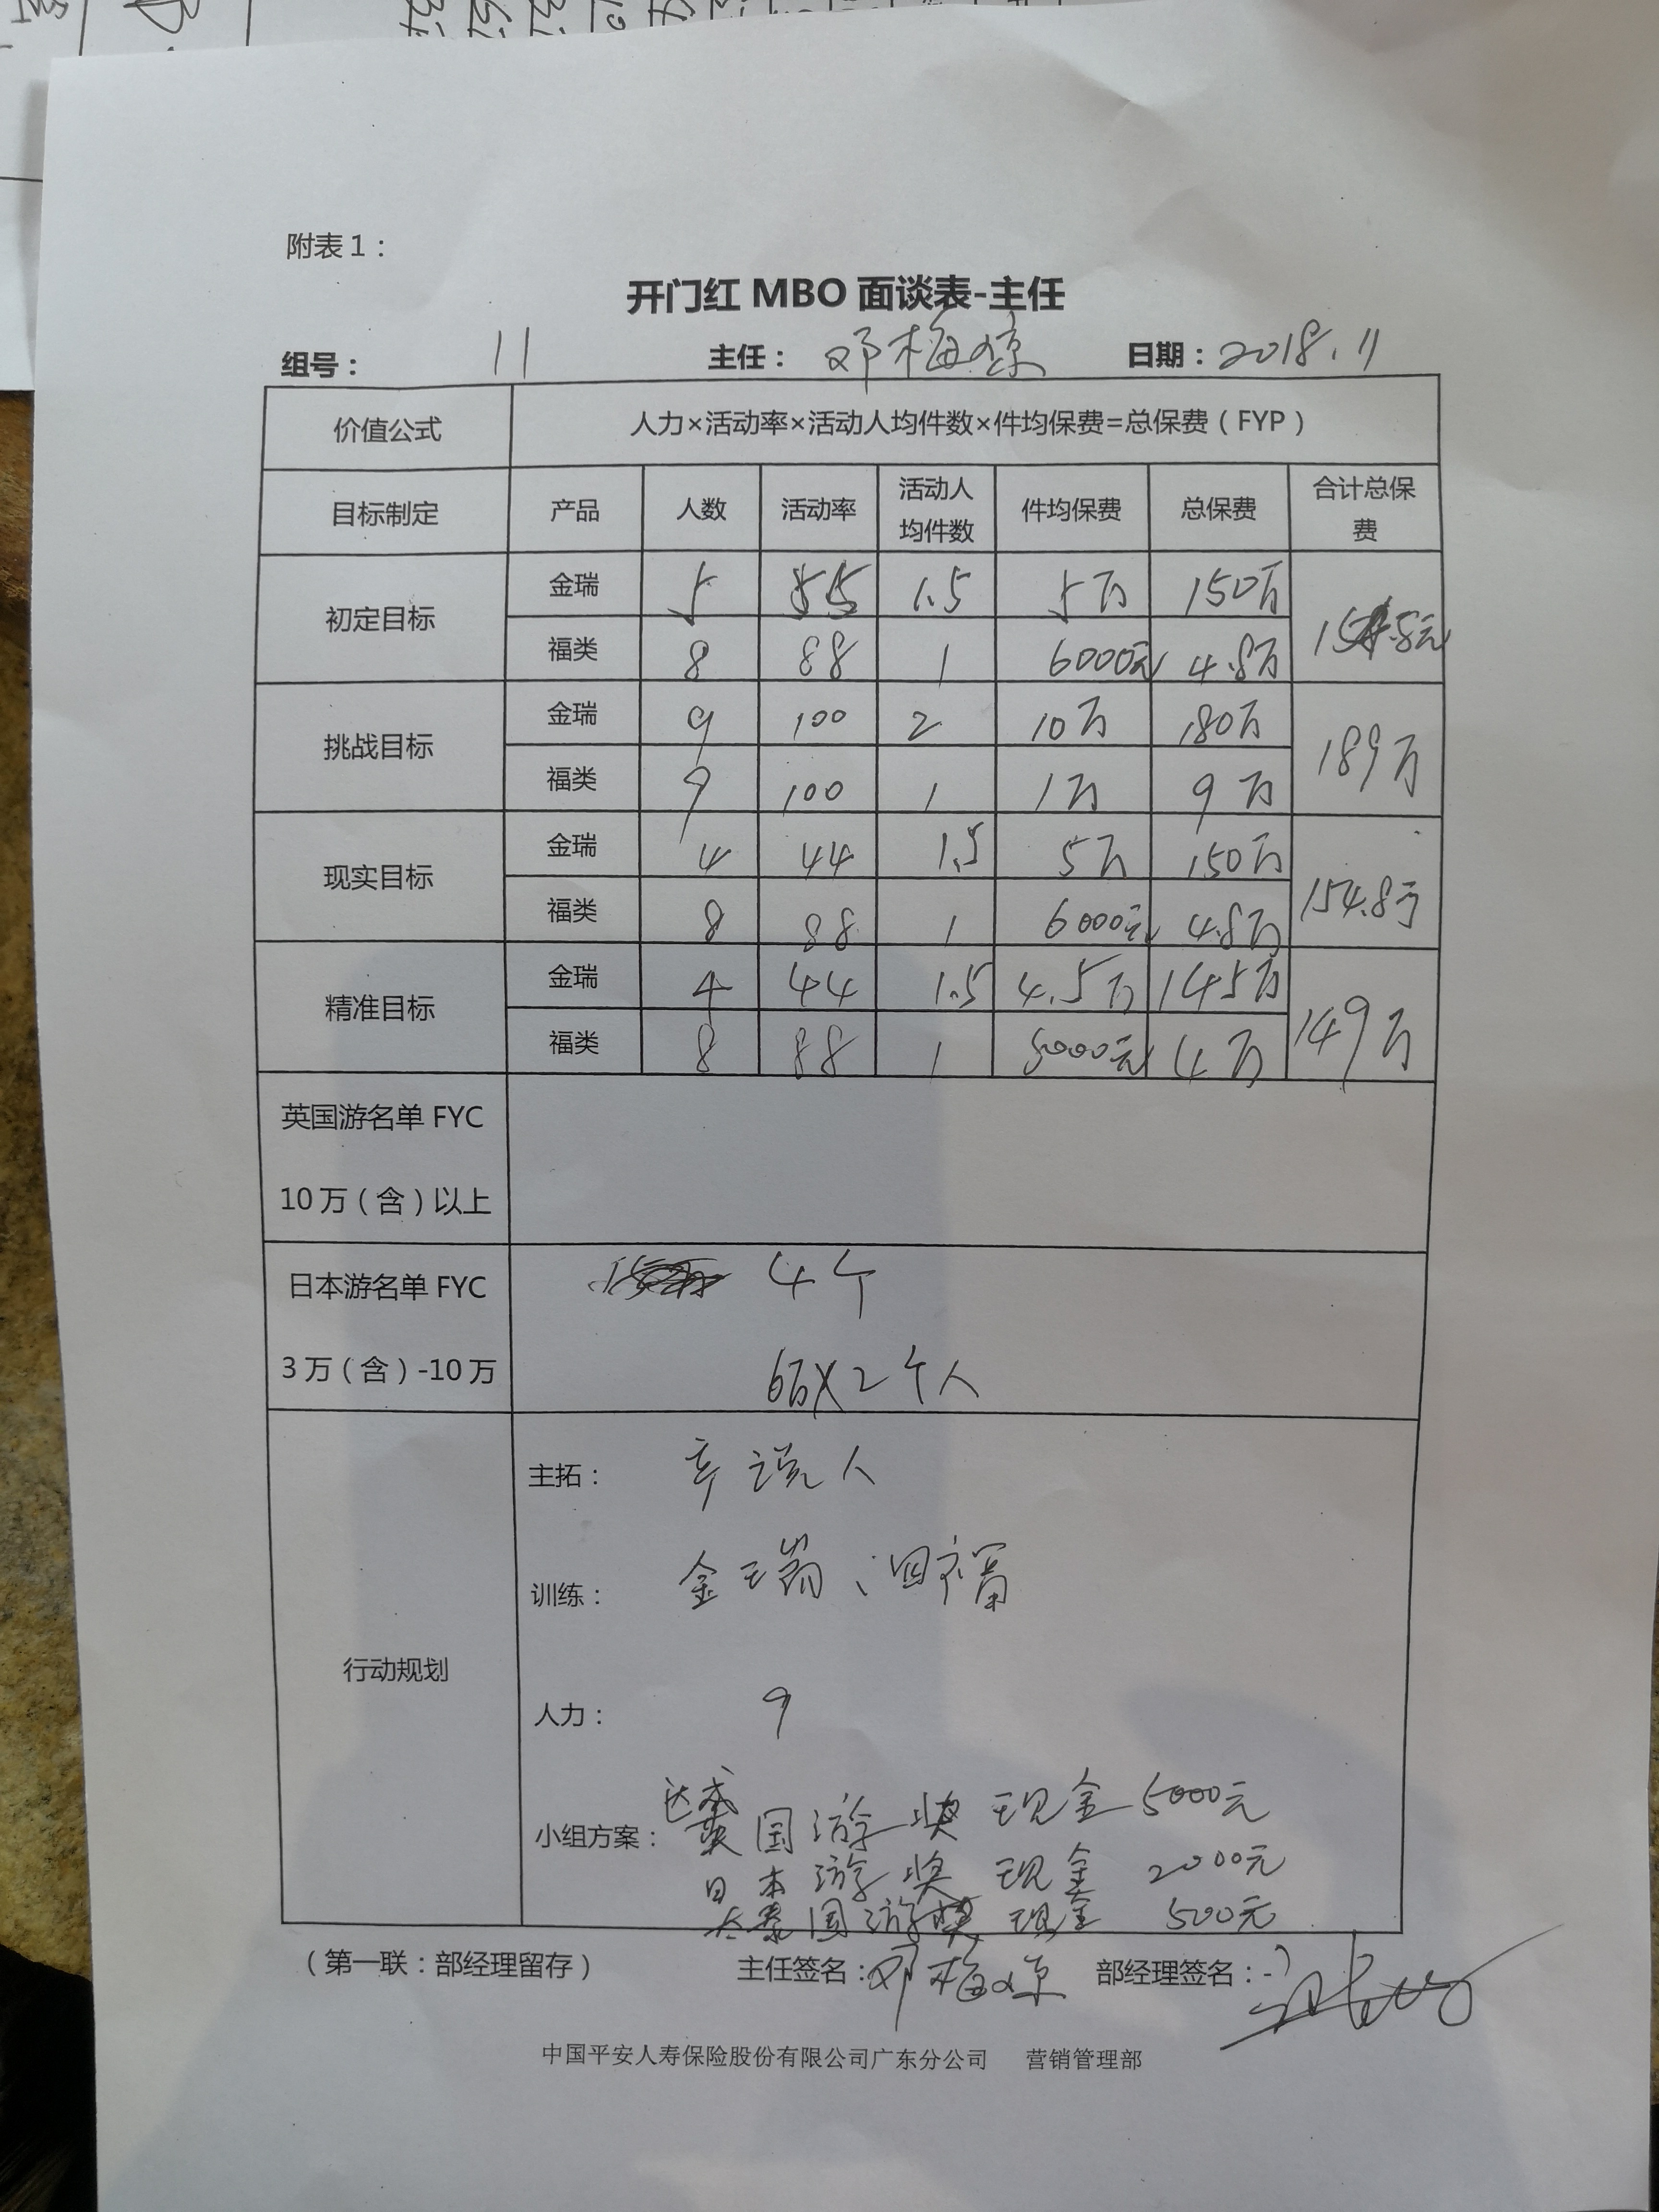 附表1：
开门红 MBO 面谈表-主任
组号： 11 主任： 邓梅琼 日期：2018.11
价值公式 人力×活动率×活动人均件数×件均保费=总保费（FYP）
目标制定 产品 人数 活动率 活动人均件数 件均保费 总保费 合计总保费
初定目标 金瑞 5 55 1.5 5万 150万
福类 8 88 1 6000元 4.8万
挑战目标 金瑞 9 100 2 10万 180万 189万
福类 9 100 1 1万 9万
现实目标 金瑞 4 44 1.5 5万 150万 154.8万
福类 8 88 1 6000元 4.8万
精准目标 金瑞 4 44 1.5 4.5万 145万 149万
福类 8 88 1 5000元 4万
英国游名单 FYC
10万（含）以上
日本游名单 FYC 4个
3万（含）-10万 6万×2个人
行动规划
主拓： 说人
训练： 金瑞、福
人力： 9
小组方案： 达成英国游奖现金5000元
日本游奖现金2000元
泰国游奖现金500元
（第一联：部经理留存） 主任签名：邓梅琼 部经理签名：
中国平安人寿保险股份有限公司广东分公司 营销管理部